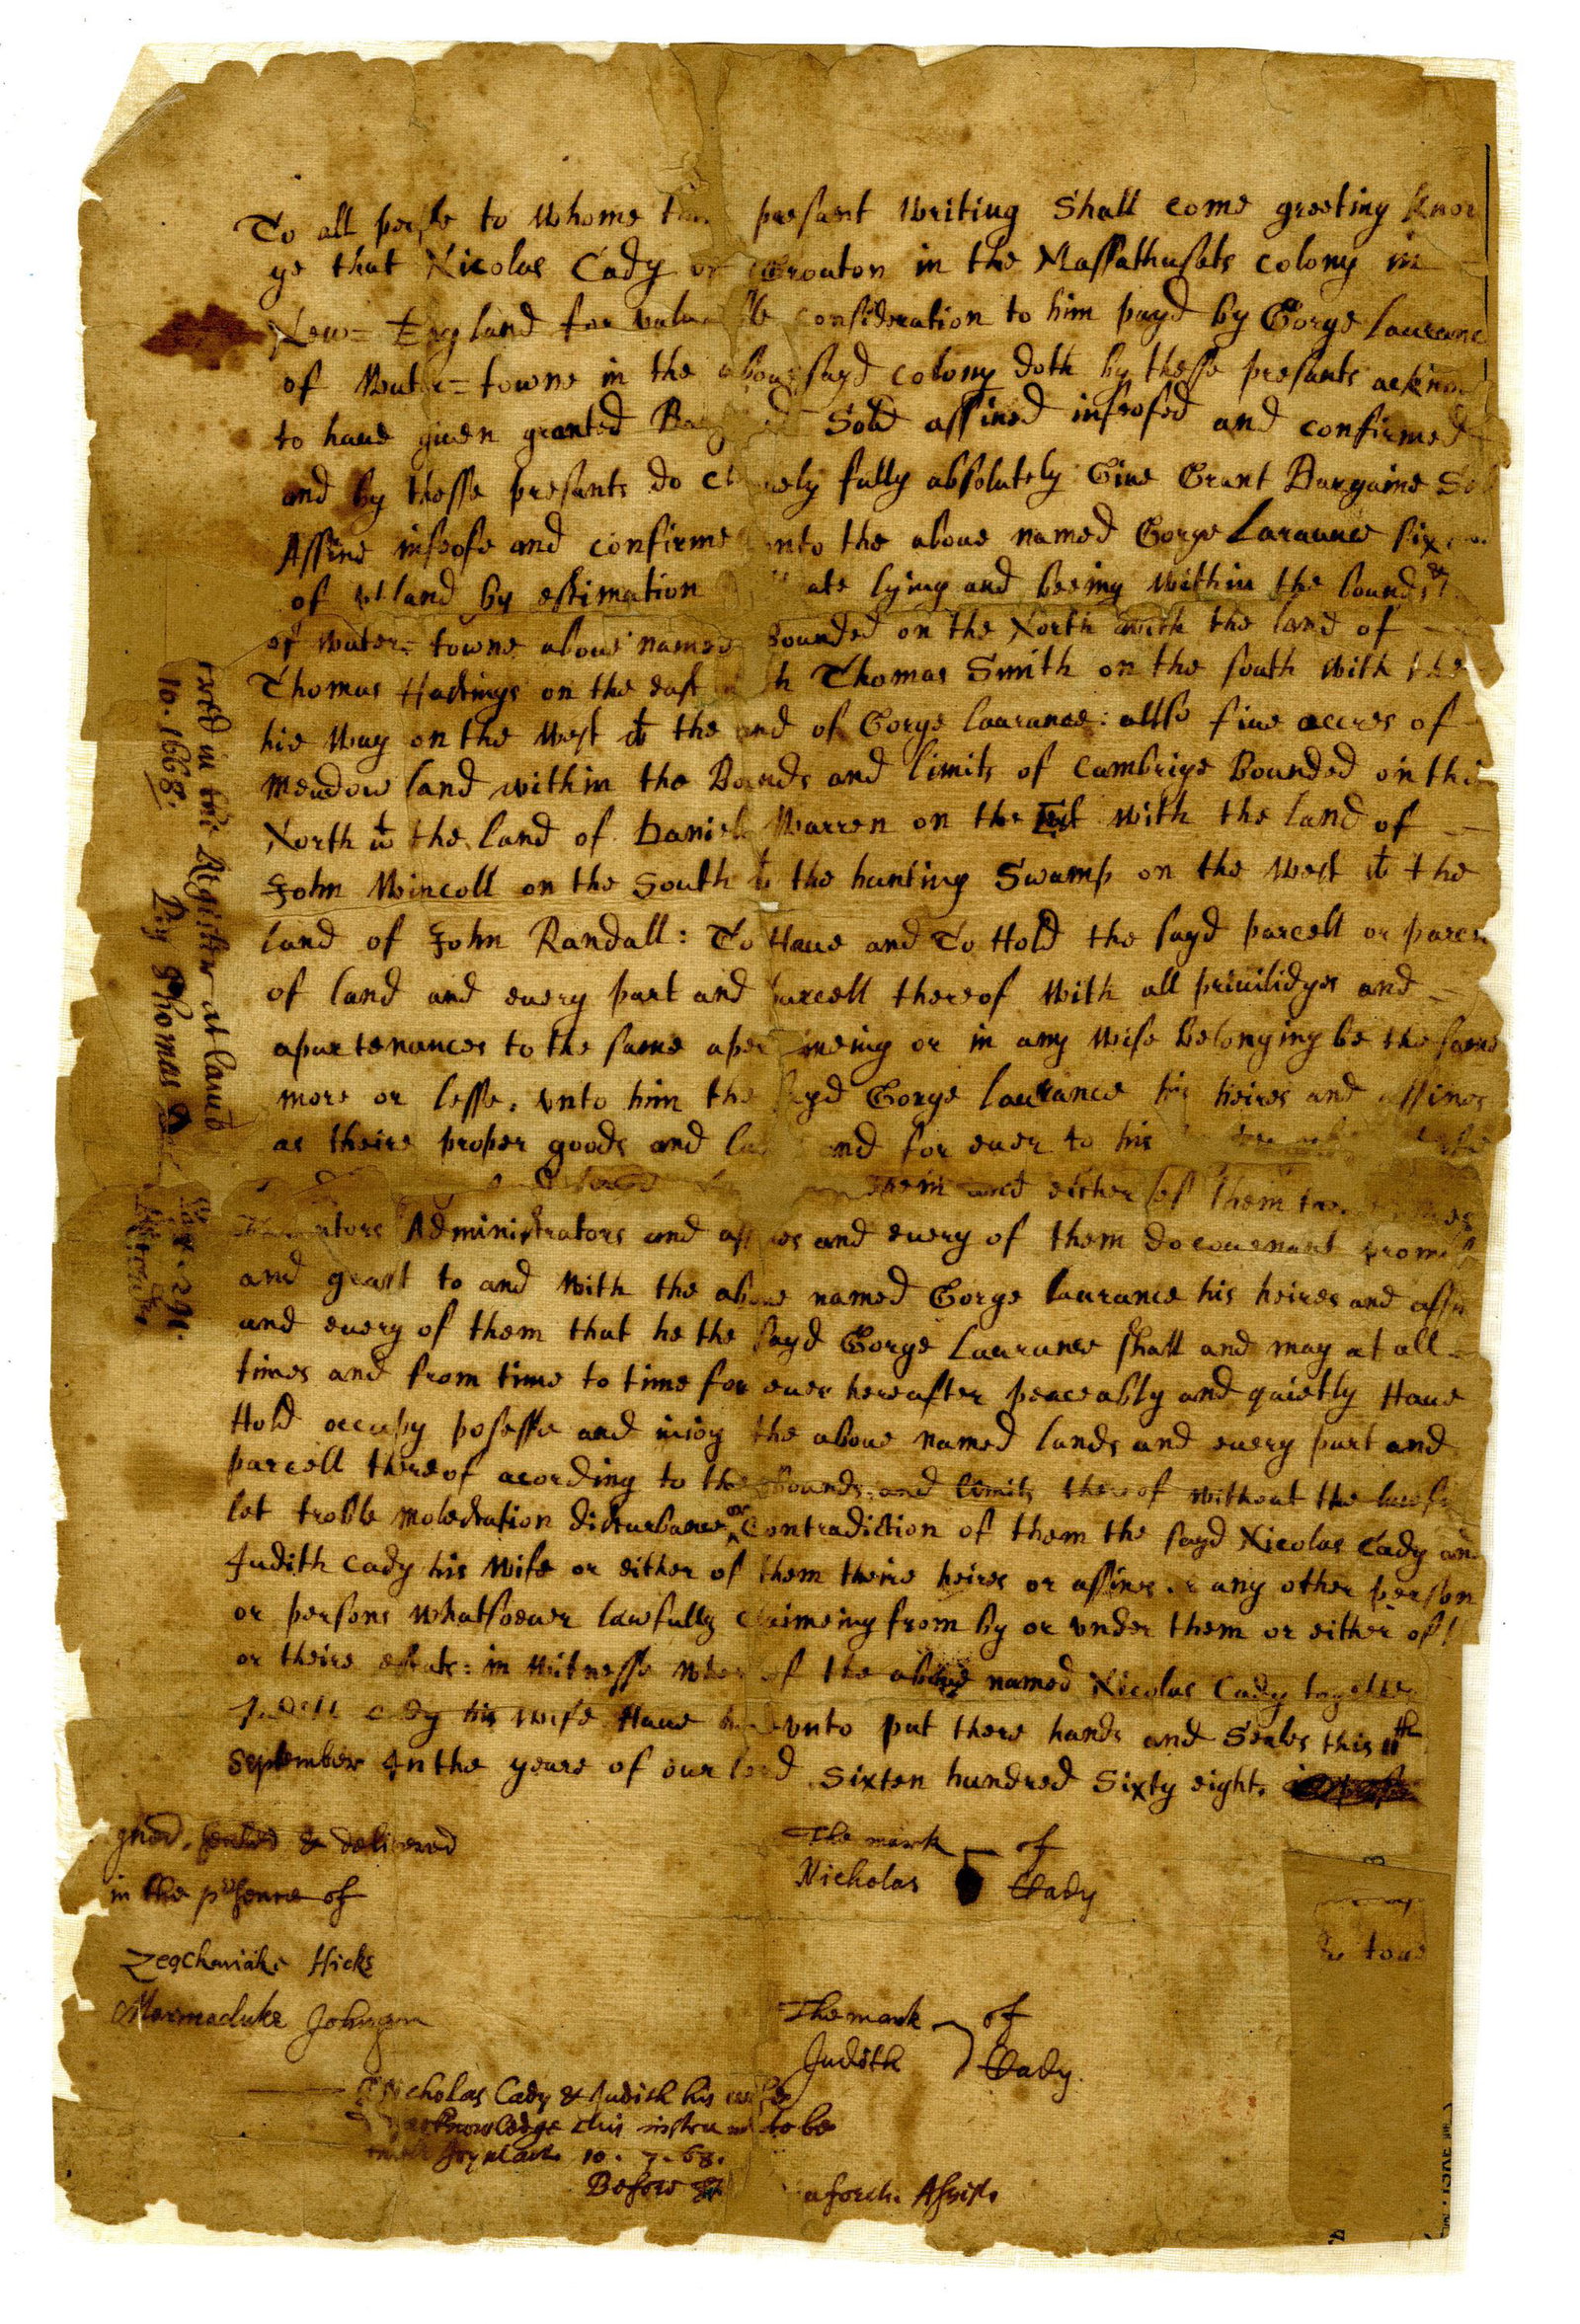 To all people to Whome presant Writing Shall come greeting Know
ye that Nicolas Cady of Groaton in the Massathusets colony in
New=England for valuable consideration to him payd by Gorge Lauranc
of Water=towne in the above sayd colony doth by these presants acknow
to have given granted Sold assined infeofed and confirmed
and by these presants do fully absolutely Give Grant Bargaine Sel
Assine infeofe and confirme unto the above named Gorge Laraunce six
of land by estimation lying and beeing within the bounds
of Water=towne above named Bounded on the North with the land of
Thomas Hastings on the east Thomas Smith on the south with the
hie Way on the West wt the land of Gorge Laurance: allso five accres of
meadow land within the Bounds and limits of Cambrige Bounded on the
North wt the land of Daniel Warren on the Est with the land of
John Wincoll on the South wt the hunting Swamp on the West wt the
land of John Randall: To Have and To Hold the sayd parcell or parce
of land and every part and parcell thereof With all privilidges and
apartenances to the same aper ineing or in any Wise Belonging be the same
more or lesse, unto him the sayd Gorge laurance his heires and assines
as theire proper goods and and for ever to his
them and either of them
Administrators and assines and every of them do covenant promis
and grant to and With the above named Gorge laurance his heires and assi
and every of them that he the sayd Gorge Laurance shall and may at all
times and from time to time for ever hereafter peaceably and quietly Have
Hold occupy posesse and injoy the above named lands and every part and
parcell thereof acording to the Bounds and limits thereof without the
let troble molestation disturbance or Contradiction of them the sayd Nicolas Cady an
Judith Cady his Wife or either of them theire heires or assines or any other person
or persons Whatsoever lawfully claimeing from by or under them or either of
or theire estats: in Witnesse Wher of the above named Nicolas Cady together
Judith Cady his Wife Have hereunto put there hands and Seales this 11th
September In the yeare of our lord Sixten hundred Sixty eight.
gned, sealed & delivered
in the presence of
Zegchariah Hicks
Marmaduke Johnson
The mark of
Nicholas Cady
The mark of
Judith Cady.
Nicholas Cady & Judith his wife
acknowledge this instrumt to be
10. 7. 68.
Before
in the Register at
10. 1668.
By Thomas